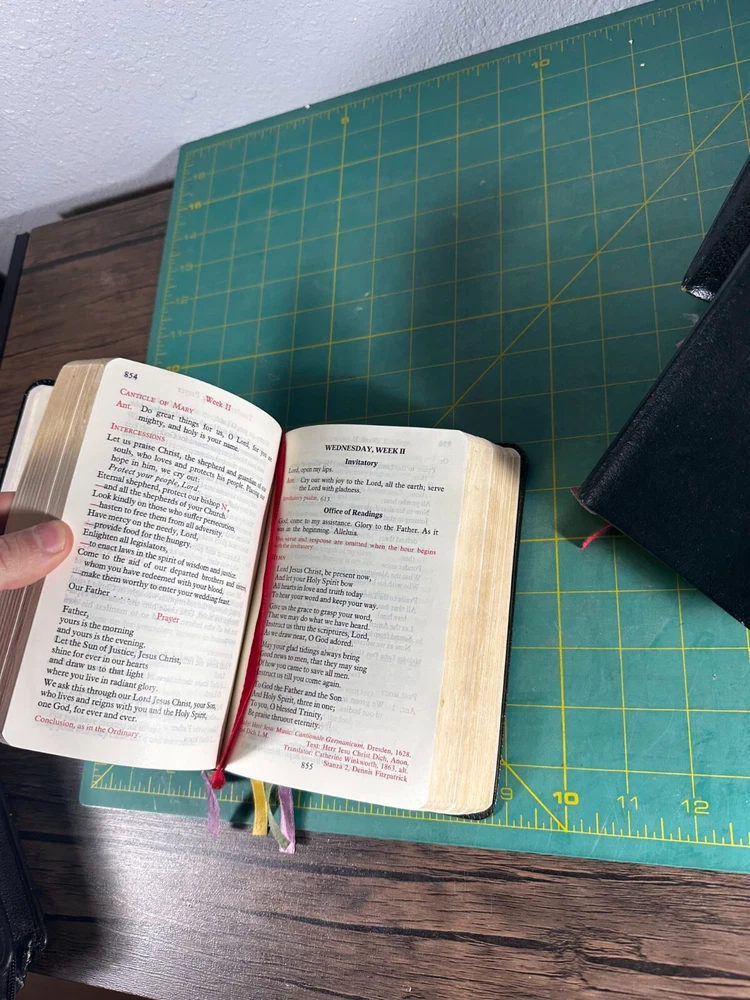 854
Week II
CANTICLE OF MARY
Ant. Do great things for us, O Lord, for you are
mighty, and holy is your name.
INTERCESSIONS
Let us praise Christ, the shepherd and guardian of our
souls, who loves and protects his people. Placing our
hope in him, we cry out:
Protect your people, Lord.
Eternal shepherd, protect our bishop N.
—and all the shepherds of your Church.
Look kindly on those who suffer persecution,
—hasten to free them from all adversity.
Have mercy on the needy, Lord,
—provide food for the hungry.
Enlighten all legislators,
—to enact laws in the spirit of wisdom and justice.
Come to the aid of our departed brothers and sisters,
whom you have redeemed with your blood,
—make them worthy to enter your wedding feast.
Our Father . . .
Prayer
Father,
yours is the morning
and yours is the evening.
Let the Sun of Justice, Jesus Christ,
shine for ever in our hearts
and draw us to that light
where you live in radiant glory.
We ask this through our Lord Jesus Christ, your Son,
who lives and reigns with you and the Holy Spirit,
one God, for ever and ever.
Conclusion, as in the Ordinary
WEDNESDAY, WEEK II
Invitatory
Lord, open my lips.
Ant. Cry out with joy to the Lord, all the earth; serve
the Lord with gladness.
Invitatory psalm, 613.
Office of Readings
God, come to my assistance. Glory to the Father. As it
was in the beginning. Alleluia.
This verse and response are omitted when the hour begins
with the invitatory.
HYMN
Lord Jesus Christ, be present now,
And let your Holy Spirit bow
All hearts in love and truth today
To hear your word and keep your way.
Give us the grace to grasp your word,
That we may do what we have heard.
Instruct us thru the scriptures, Lord,
As we draw near, O God adored.
May your glad tidings always bring
Good news to men, that they may sing
Of how you came to save all men.
Instruct us till you come again.
To God the Father and the Son
And Holy Spirit, three in one;
To you, O blessed Trinity,
Be praise thruout eternity.
Herr Jesu Music: Cantionale Germanicum, Dresden, 1628.
Dich L.M.
Text: Herr Jesu Christ Dich, Anon.
Translator: Catherine Winkworth, 1863, alt.
Stanza 2, Dennis Fitzpatrick
855
10
9
10
11
12